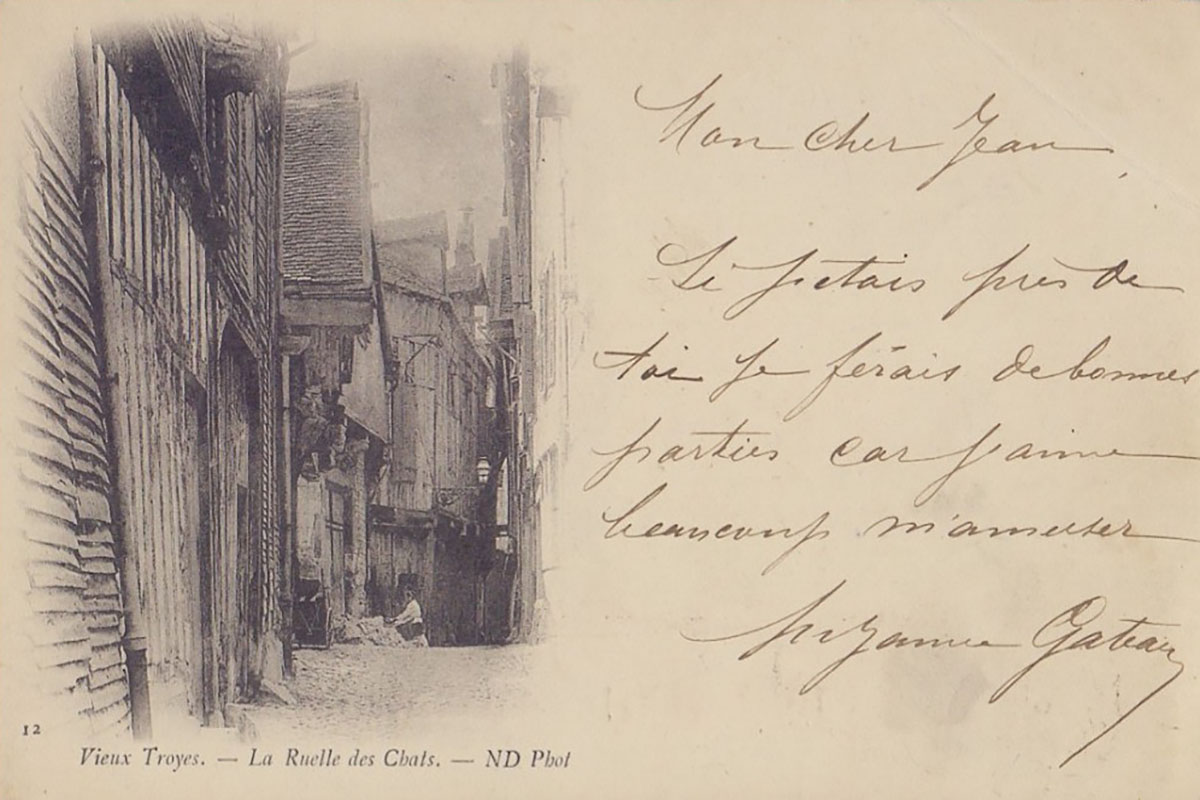 Mon cher Jean,
Si j'etais près de
toi je ferais de bonnes
parties car j'aime
beaucoup m'amuser
Suzanne Gateau
12
Vieux Troyes. — La Ruelle des Chats. — ND Phot